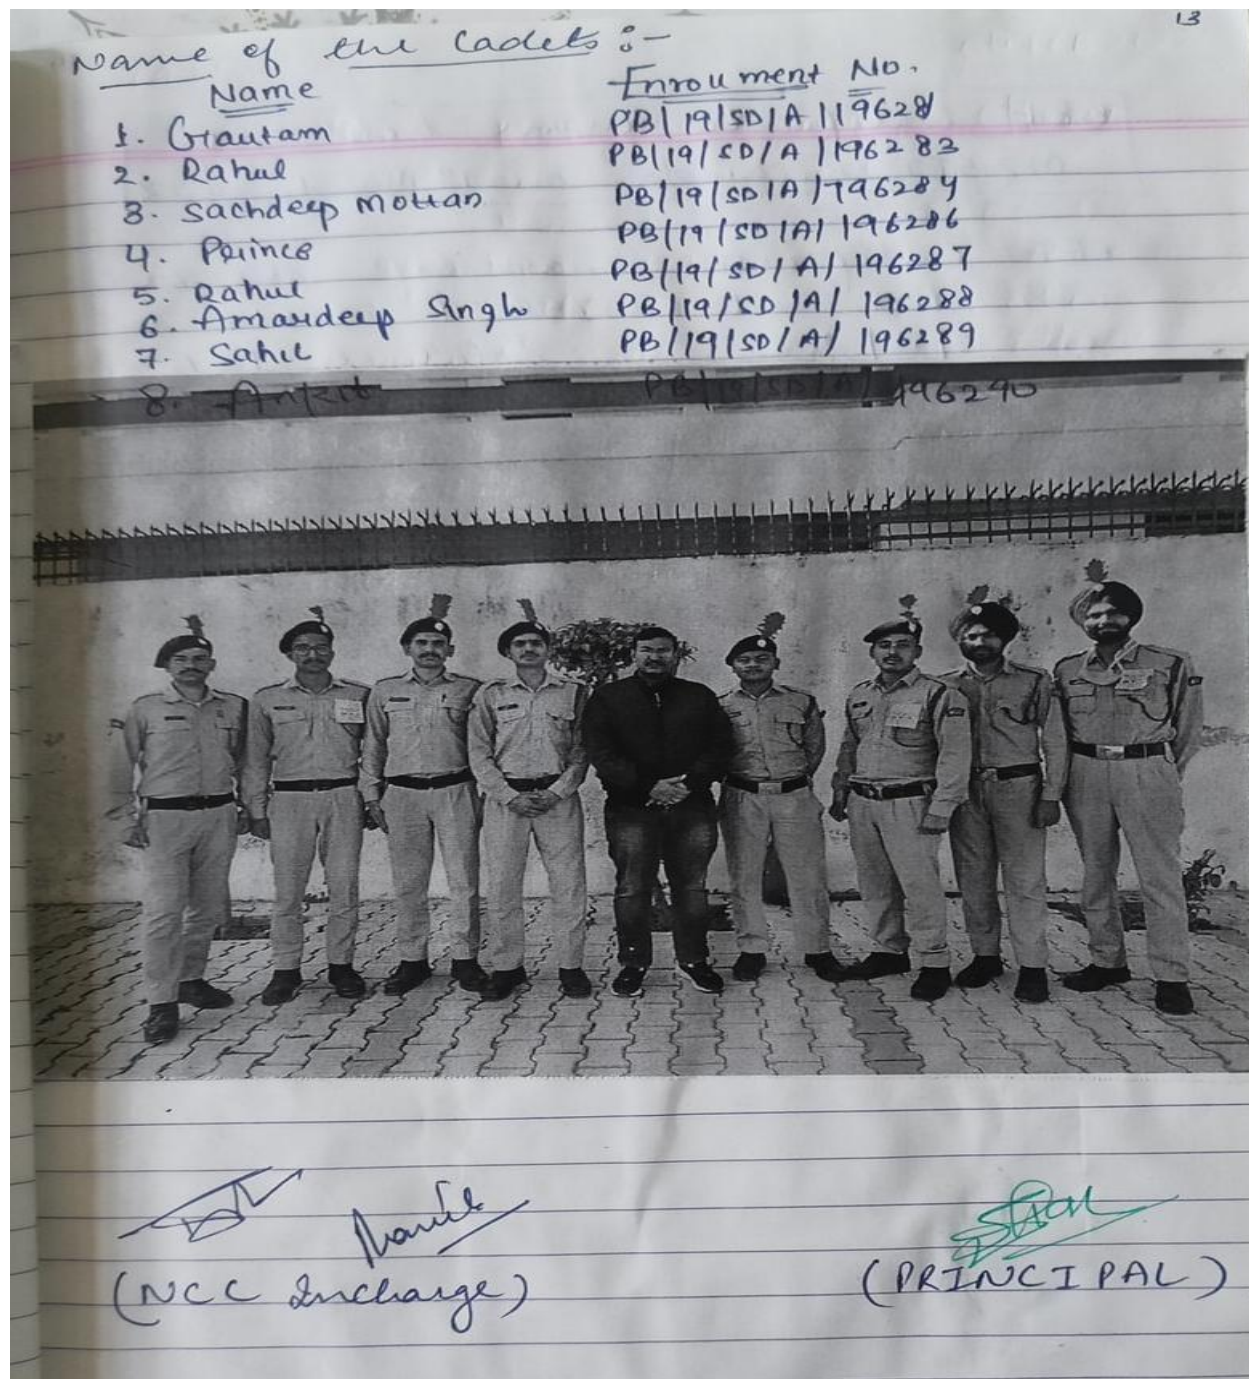 13
Name of the Cadets :-
Name Enrollment No.
1. Gautam PB/19/SD/A/196281
2. Rahul PB/19/SD/A/196283
3. Sachdeep Mottan PB/19/SD/A/196284
4. Prince PB/19/SD/A/196286
5. Rahul PB/19/SD/A/196287
6. Amardeep Singh PB/19/SD/A/196288
7. Sahil PB/19/SD/A/196289
8. Ankit PB/19/SD/A/196290
(NCC Incharge) (PRINCIPAL)